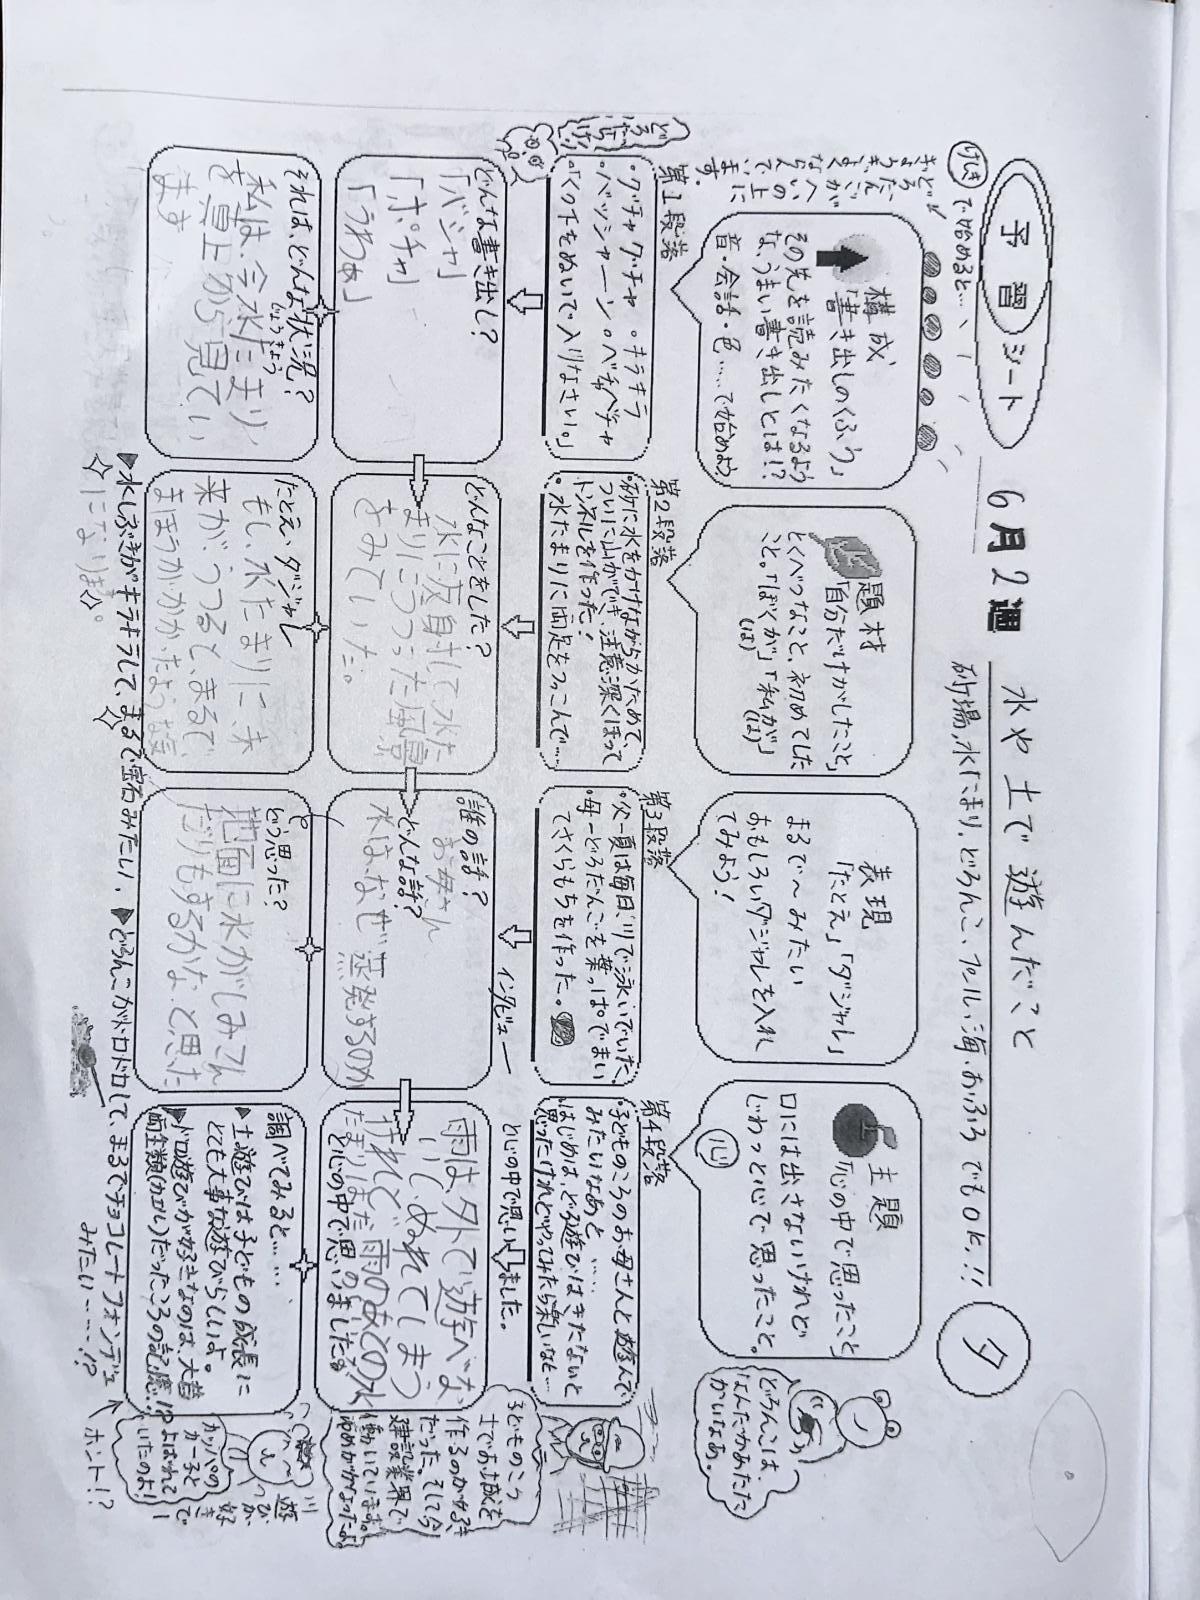 予習シート
6月2週
水や土で遊んだこと
砂場、水たまり、どろんこ、プール、海、おふろでもOK!!
夕
けしきで始めると…
どろだんごが
ならんでいます。
構成
「書き出しのくふう」
その先を読みたくなるよう
な、うまい書き出しとは!?
音・会話・色……で始めよう
題材
「自分だけがしたこと」
とくべつなこと、初めてした
こと。「ぼくが」「私が」
(は) (は)
表現
「たとえ」「ダジャレ」
まるで〜みたい
おもしろいダジャレを入れ
てみよう!
主題
「心の中で思ったこと」
口には出さないけれど
じわっと心で思ったこと。
心
どろんこは、
なんだかあたた
かいなぁ。
第1段落
・グチャグチャ・キラキラ
・バッシャーン・ベチャベチャ
・「くつ下をぬいで入りなさい。」
第2段落
・砂に水をかけながらかためて、
ついに山ができ、注意深くほって
トンネルを作った!
・水たまりに両足をつっこんで…
第3段落
・父ー夏は毎日、川で泳いでいた。
・母ーどろだんごを葉っぱでまい
てさくらもちを作った。
第4段落
・子どものころのお母さんと遊んで
みたいなあと……
・はじめは、どろ遊びはきたないと
思ったけれどやってみたら楽しいなと…
インタビュー
と心の中で思いました。
どんな書き出し?
「バシャ」
「ポチャ」
「うわぁ」
どんなことをした?
水に反射して水た
まりにうつった風景
をみていた。
誰の話?
お母さん
どんな話?
水は、なぜ蒸発するのか
雨は、外で遊べな
いし、ぬれてしまう
けれど、雨のあとの水
たまりはまだ
と心の中で思いました。
子どものころ
土でお城を
作るのが好き
だった。そして今
建設業界で
働いています。
それは、どんな状況?
じょうきょう
私は、今水たまり
を真上から見てい
ます
たとえ、ダジャレ
もし、水たまりに、未
来が、うつると、まるで、
まほうがかかったような気
になります。
どう思った?
地面に水がしみこん
だりもするかな、と思った
調べてみると……
▲土遊びは子どもの成長に
とても大事な遊びらしいよ。
▲ドロ遊びが好きなのは、大昔
両生類(カエル)だったころの記憶!?
川
遊
びが
好き
で
カッパの
カー子と
よばれて
いたのよ!
▲水しぶきがキラキラして、まるで宝石みたい、
▲どろんこがドロドロして、まるでチョコレートフォンデュ
みたい……!?
ホント!?